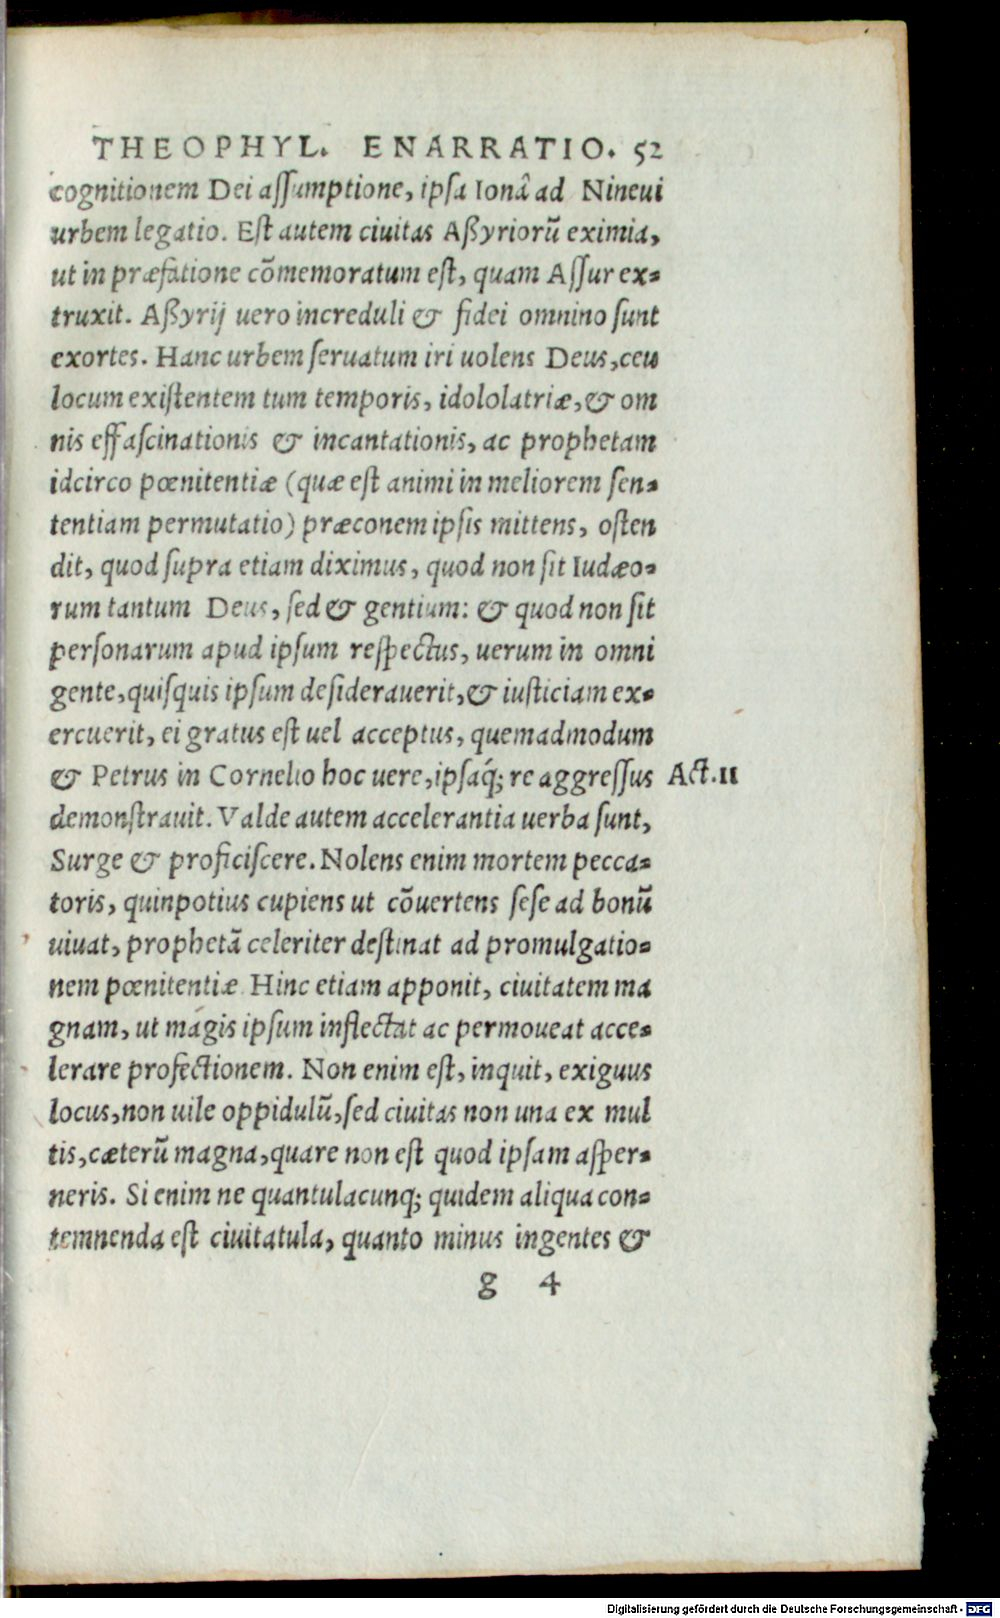 THEOPHYL. ENARRATIO. 52
cognitionem Dei assumptione, ipsa Ionâ ad Nineui
urbem legatio. Est autem ciuitas Aßyriorũ eximia,
ut in præfatione cõmemoratum est, quam Assur ex-
truxit. Aßyrij uero increduli & fidei omnino sunt
exortes. Hanc urbem seruatum iri uolens Deus, ceu
locum existentem tum temporis, idololatriæ, & om
nis effascinationis & incantationis, ac prophetam
idcirco pœnitentiæ (quæ est animi in meliorem sen-
tentiam permutatio) præconem ipsis mittens, osten
dit, quod supra etiam diximus, quod non sit Iudæo-
rum tantum Deus, sed & gentium: & quod non sit
personarum apud ipsum respectus, uerum in omni
gente, quisquis ipsum desiderauerit, & iusticiam ex-
ercuerit, ei gratus est uel acceptus, quemadmodum
& Petrus in Cornelio hoc uere, ipsaq́; re aggressus Act.11
demonstrauit. Valde autem accelerantia uerba sunt,
Surge & proficiscere. Nolens enim mortem pecca-
toris, quinpotius cupiens ut cõuertens sese ad bonũ
uiuat, prophetã celeriter destinat ad promulgatio-
nem pœnitentiæ. Hinc etiam apponit, ciuitatem ma
gnam, ut magis ipsum inflectat ac permoueat acce-
lerare profectionem. Non enim est, inquit, exiguus
locus, non uile oppidulũ, sed ciuitas non una ex mul
tis, cæterũ magna, quare non est quod ipsam asper-
neris. Si enim ne quantulacunq; quidem aliqua con-
temnenda est ciuitatula, quanto minus ingentes &
g 4
Digitalisierung gefördert durch die Deutsche Forschungsgemeinschaft - DFG